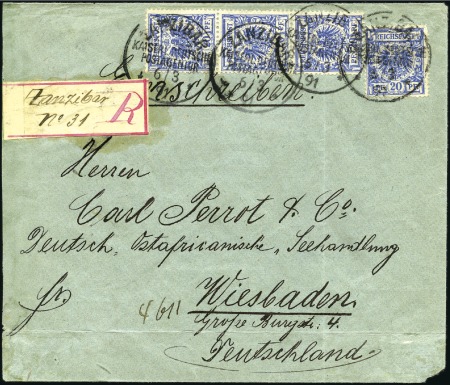 ZANZIBAR
KAISERL. DEUTSCHE
POSTAGENTUR
6/3
91
REICHSPOST
20
Einschreiben.
Zanzibar
No 31
R
Herren
Carl Perrot & Co.
Deutsch Ostafricanische Seehandlung
fr.
4611
Wiesbaden
Große Burgstr. 4.
Deutschland